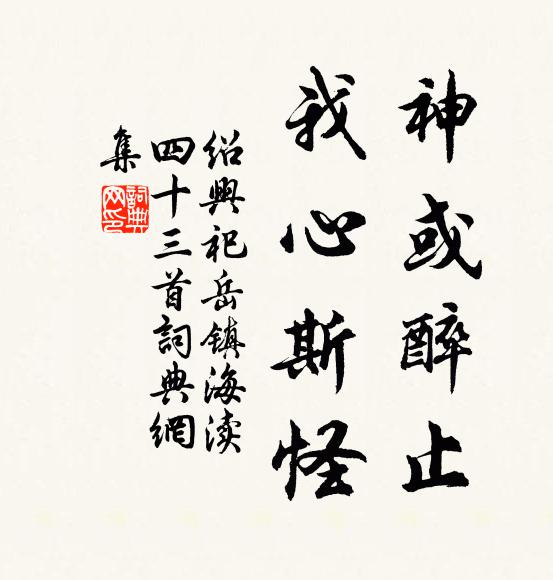 神或醉止
我心斯怪
绍興祀岳镇海渎
四十三首詞典網
集
詞典
网印